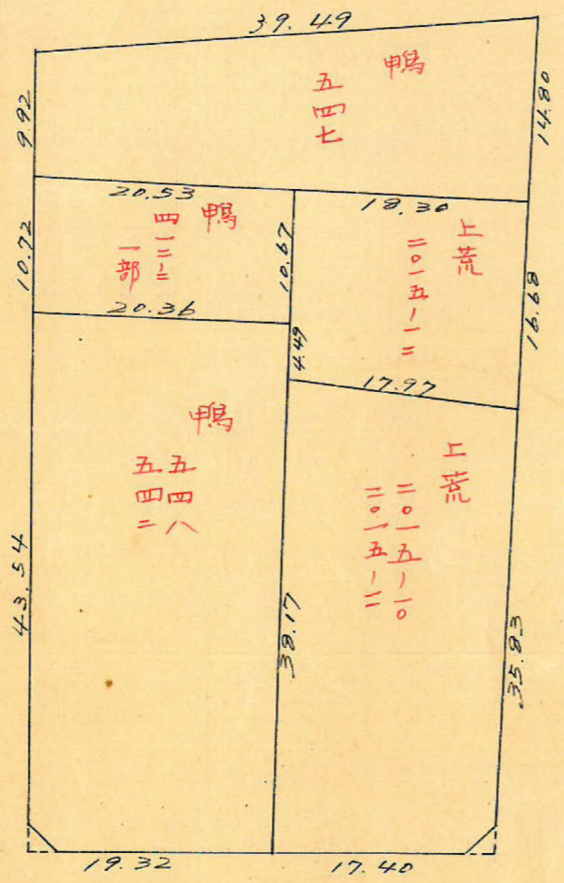 39.49
9.92
鴨
五四七
14.80
20.53
18.30
10.72
鴨
四一二-二
一部
10.67
上荒
二〇一五-一二
16.68
20.36
4.49
17.97
鴨
五四八
五四二
上荒
二〇一五-一〇
二〇一五-一一
43.54
38.17
35.83
19.32
17.40